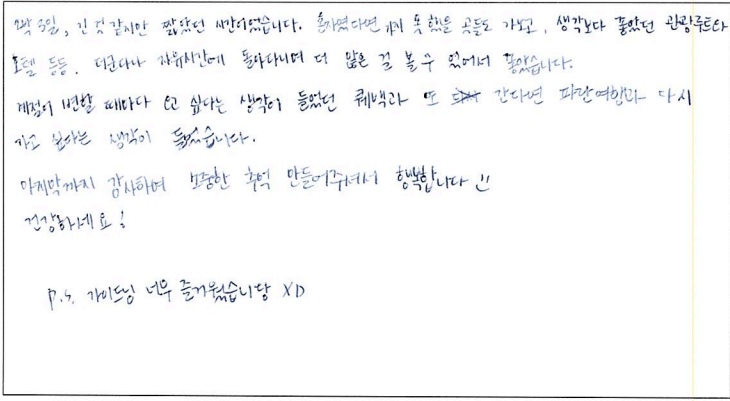 2박 3일, 긴 것 같지만 짧았던 시간이었습니다. 혼자였다면 가지 못했을 곳들도 가보고, 생각보다 좋았던 관광루트와
호텔 등등. 더군다나 자유시간에 돌아다니며 더 많은 걸 볼 수 있어서 좋았습니다.
계절이 변할 때마다 오고 싶다는 생각이 들었던 퀘벡과 또 간다면 파란여행과 다시
가고 싶다는 생각이 들었습니다.
마지막까지 감사하며 소중한 추억 만들어주셔서 행복합니다 :)
건강하세요!
P.S. 가이드님 너무 즐거웠습니당 XD